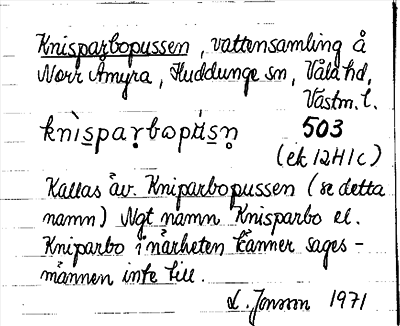 Knisparbopussen, vattensamling å
Norr Åmyra, Huddunge sn, Våla hd,
Västm. l.
knìsparbopúsn̥ 503
(ek 12H1c)
Kallas äv. Kniparbopussen (se detta
namn) Ngt namn Knisparbo el.
Kniparbo i närheten känner sages-
männen inte till.
L. Jonsson 1971